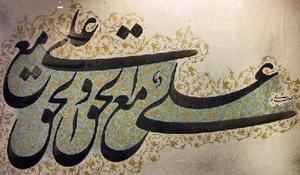 علی مع الحق والحق مع علی